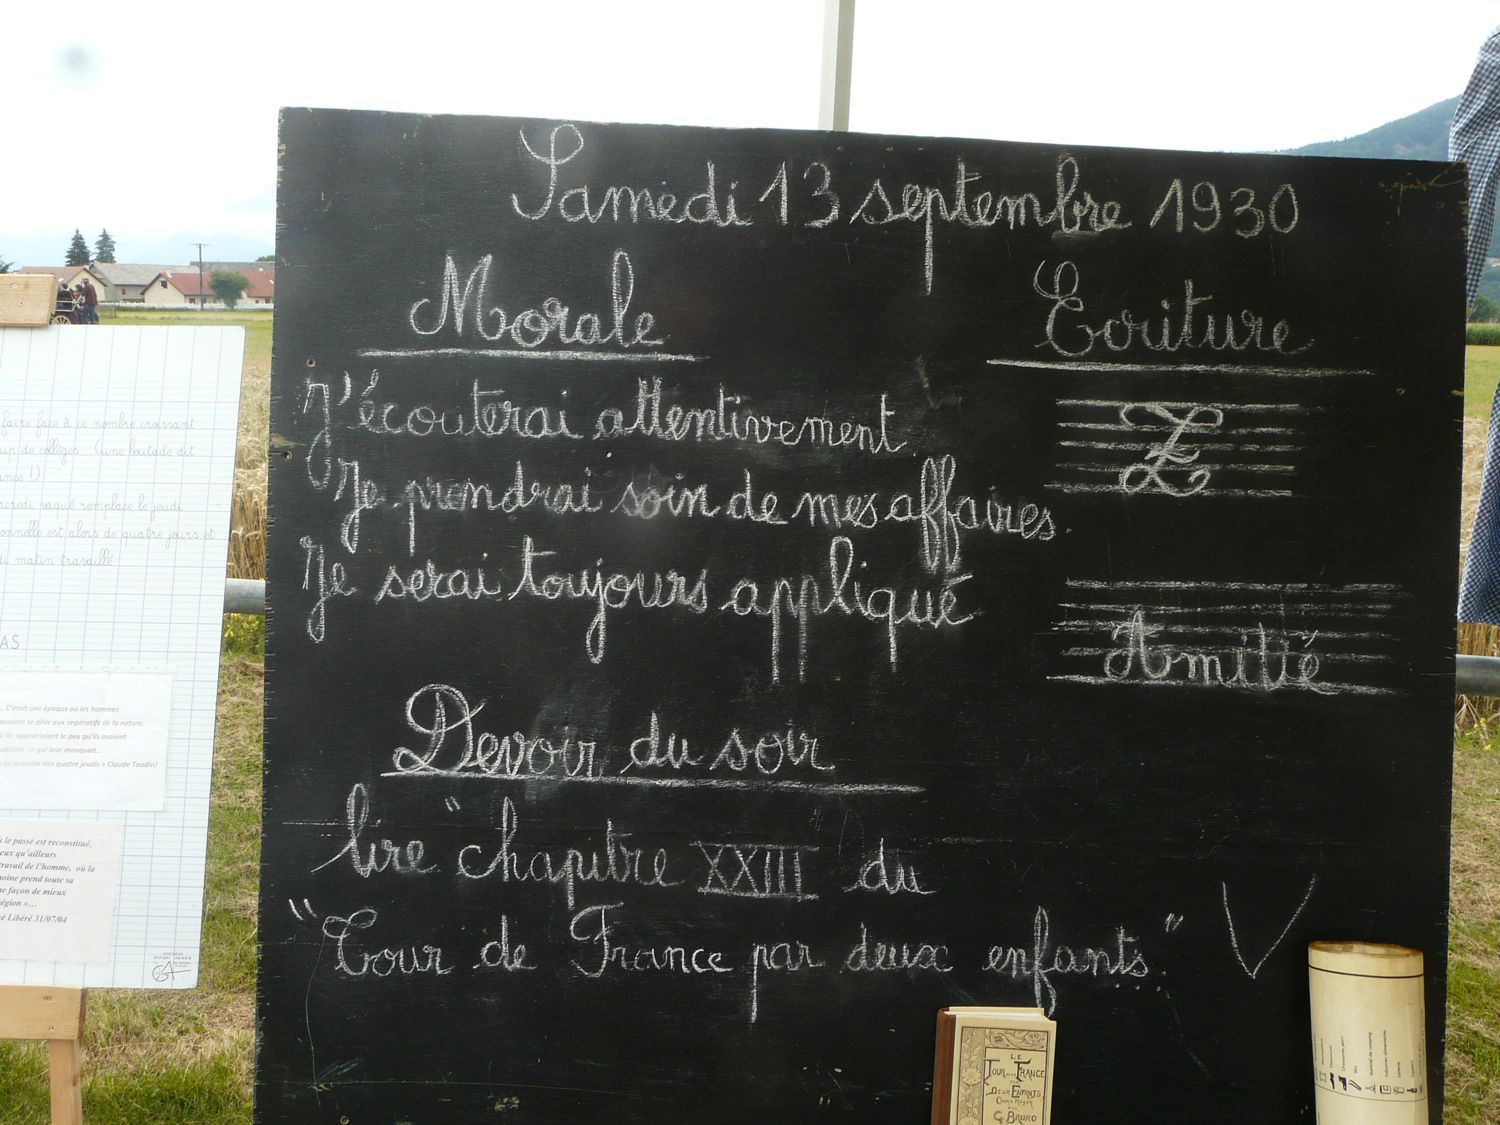 Samedi 13 septembre 1930
Morale
J'écouterai attentivement.
Je prendrai soin de mes affaires.
Je serai toujours appliqué
Ecriture
Z
Amitié
Devoir du soir
lire "chapitre XXIII" du
"Tour de France par deux enfants."
V
LE
TOUR DE LA FRANCE
PAR
DEUX ENFANTS
COURS MOYEN
PAR
G. BRUNO
faire face à ce nombre croissant
de collèges (une boutade dit
!)
remplace le jeudi
est alors de quatre jours et
matin travaillé
AS
... C'était une époque où les hommes
se plier aux impératifs de la nature,
ils appréciaient le peu qu'ils avaient
ce qui leur manquait...
La semaine des quatre jeudis » Claude Taudin)
le passé est reconstitué,
qu'ailleurs
travail de l'homme, où la
prend toute sa
façon de mieux
région »...
Libéré 31/07/04